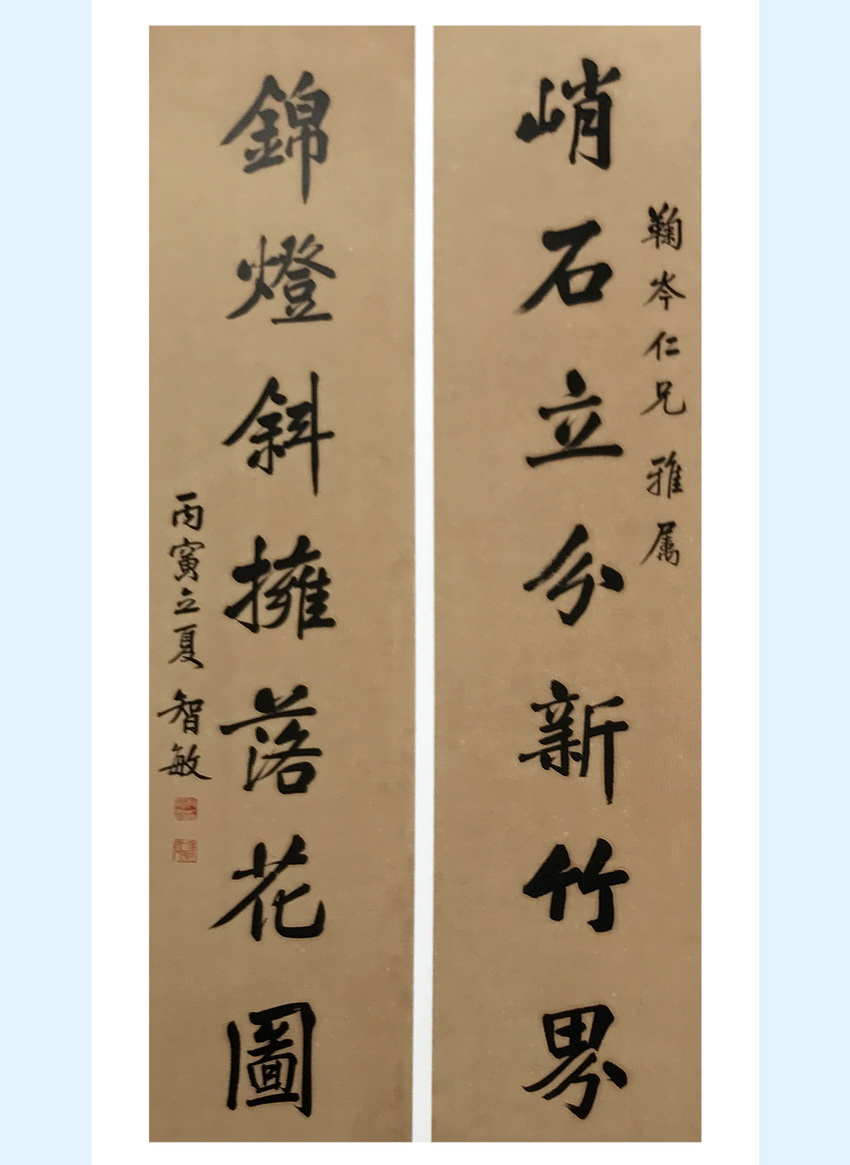 鞠岑仁兄 雅属
峭石立分新竹界
錦燈斜擁落花圖
丙寅立夏 智敏